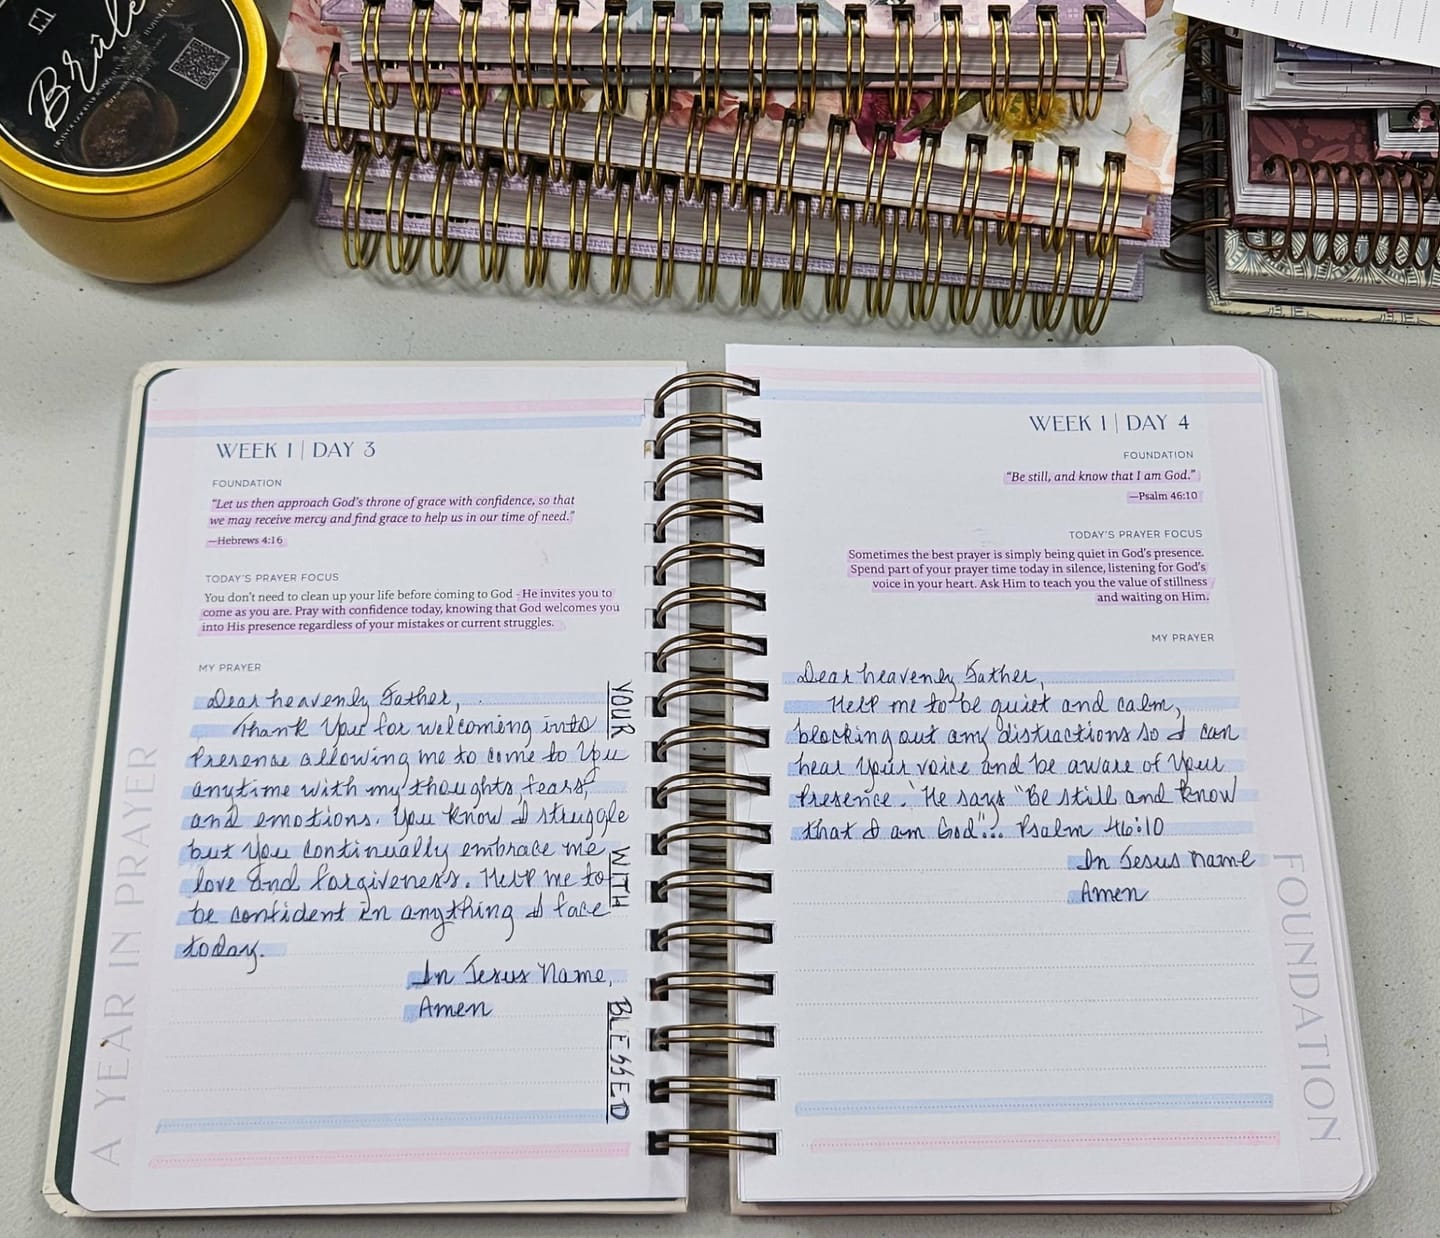 Brûlé
WEEK 1 | DAY 3
FOUNDATION
"Let us then approach God's throne of grace with confidence, so that
we may receive mercy and find grace to help us in our time of need."
—Hebrews 4:16
TODAY'S PRAYER FOCUS
You don't need to clean up your life before coming to God - He invites you to
come as you are. Pray with confidence today, knowing that God welcomes you
into His presence regardless of your mistakes or current struggles.
MY PRAYER
Dear heavenly Father,
Thank You for welcoming into
Presence allowing me to come to You
anytime with my thoughts, fears,
and emotions. You know I struggle
but You continually embrace me
love and forgiveness. Help me to
be confident in anything I face
today.
In Jesus Name,
Amen
YOUR
WITH
BLESSED
A YEAR IN PRAYER
WEEK 1 | DAY 4
FOUNDATION
"Be still, and know that I am God."
—Psalm 46:10
TODAY'S PRAYER FOCUS
Sometimes the best prayer is simply being quiet in God's presence.
Spend part of your prayer time today in silence, listening for God's
voice in your heart. Ask Him to teach you the value of stillness
and waiting on Him.
MY PRAYER
Dear heavenly Father,
Help me to be quiet and calm,
blocking out any distractions so I can
hear Your voice and be aware of Your
Presence. He says "Be still and Know
that I am God"... Psalm 46:10
In Jesus Name
Amen
FOUNDATION